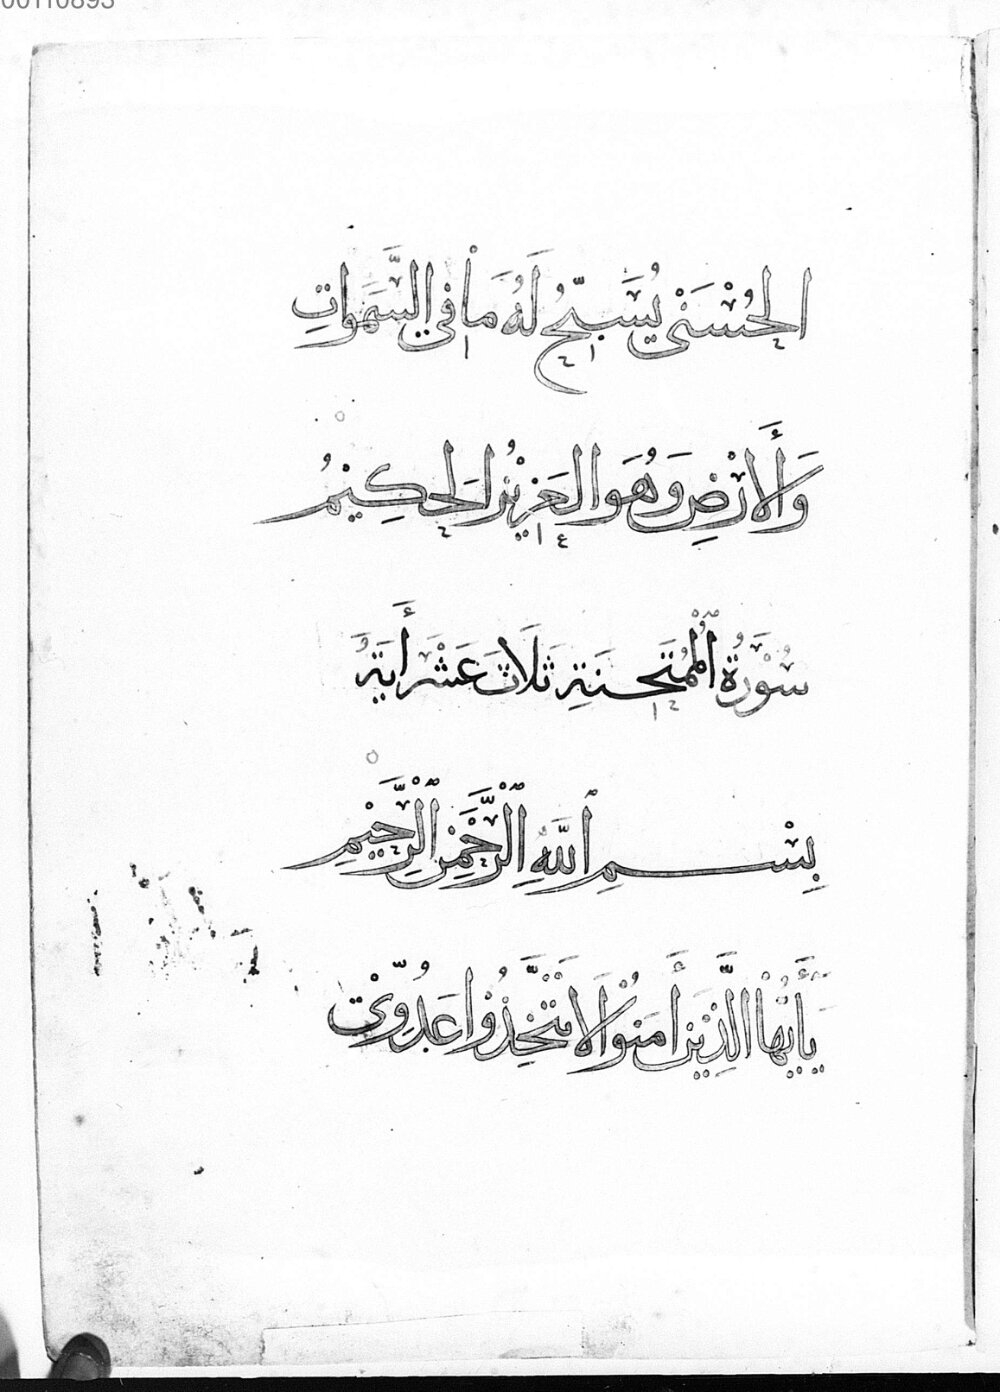 00110893
الحُسْنَىٰ يُسَبِّحُ لَهُ مَا فِي السَّمَوَاتِ
وَالْأَرْضِ وَهُوَ العَزِيزُ الحَكِيْمُ
سُوْرَةُ الْمُمْتَحِنَةِ ثَلَاثَ عَشْرَ أَيَةً
بِسْمِ اللَّهِ الرَّحْمَنِ الرَّحِيْمِ
يَأَيُّهَا الَّذِيْنَ أَمَنُوْا لَا تَتَّخِذُوْا عَدُوِّيْ